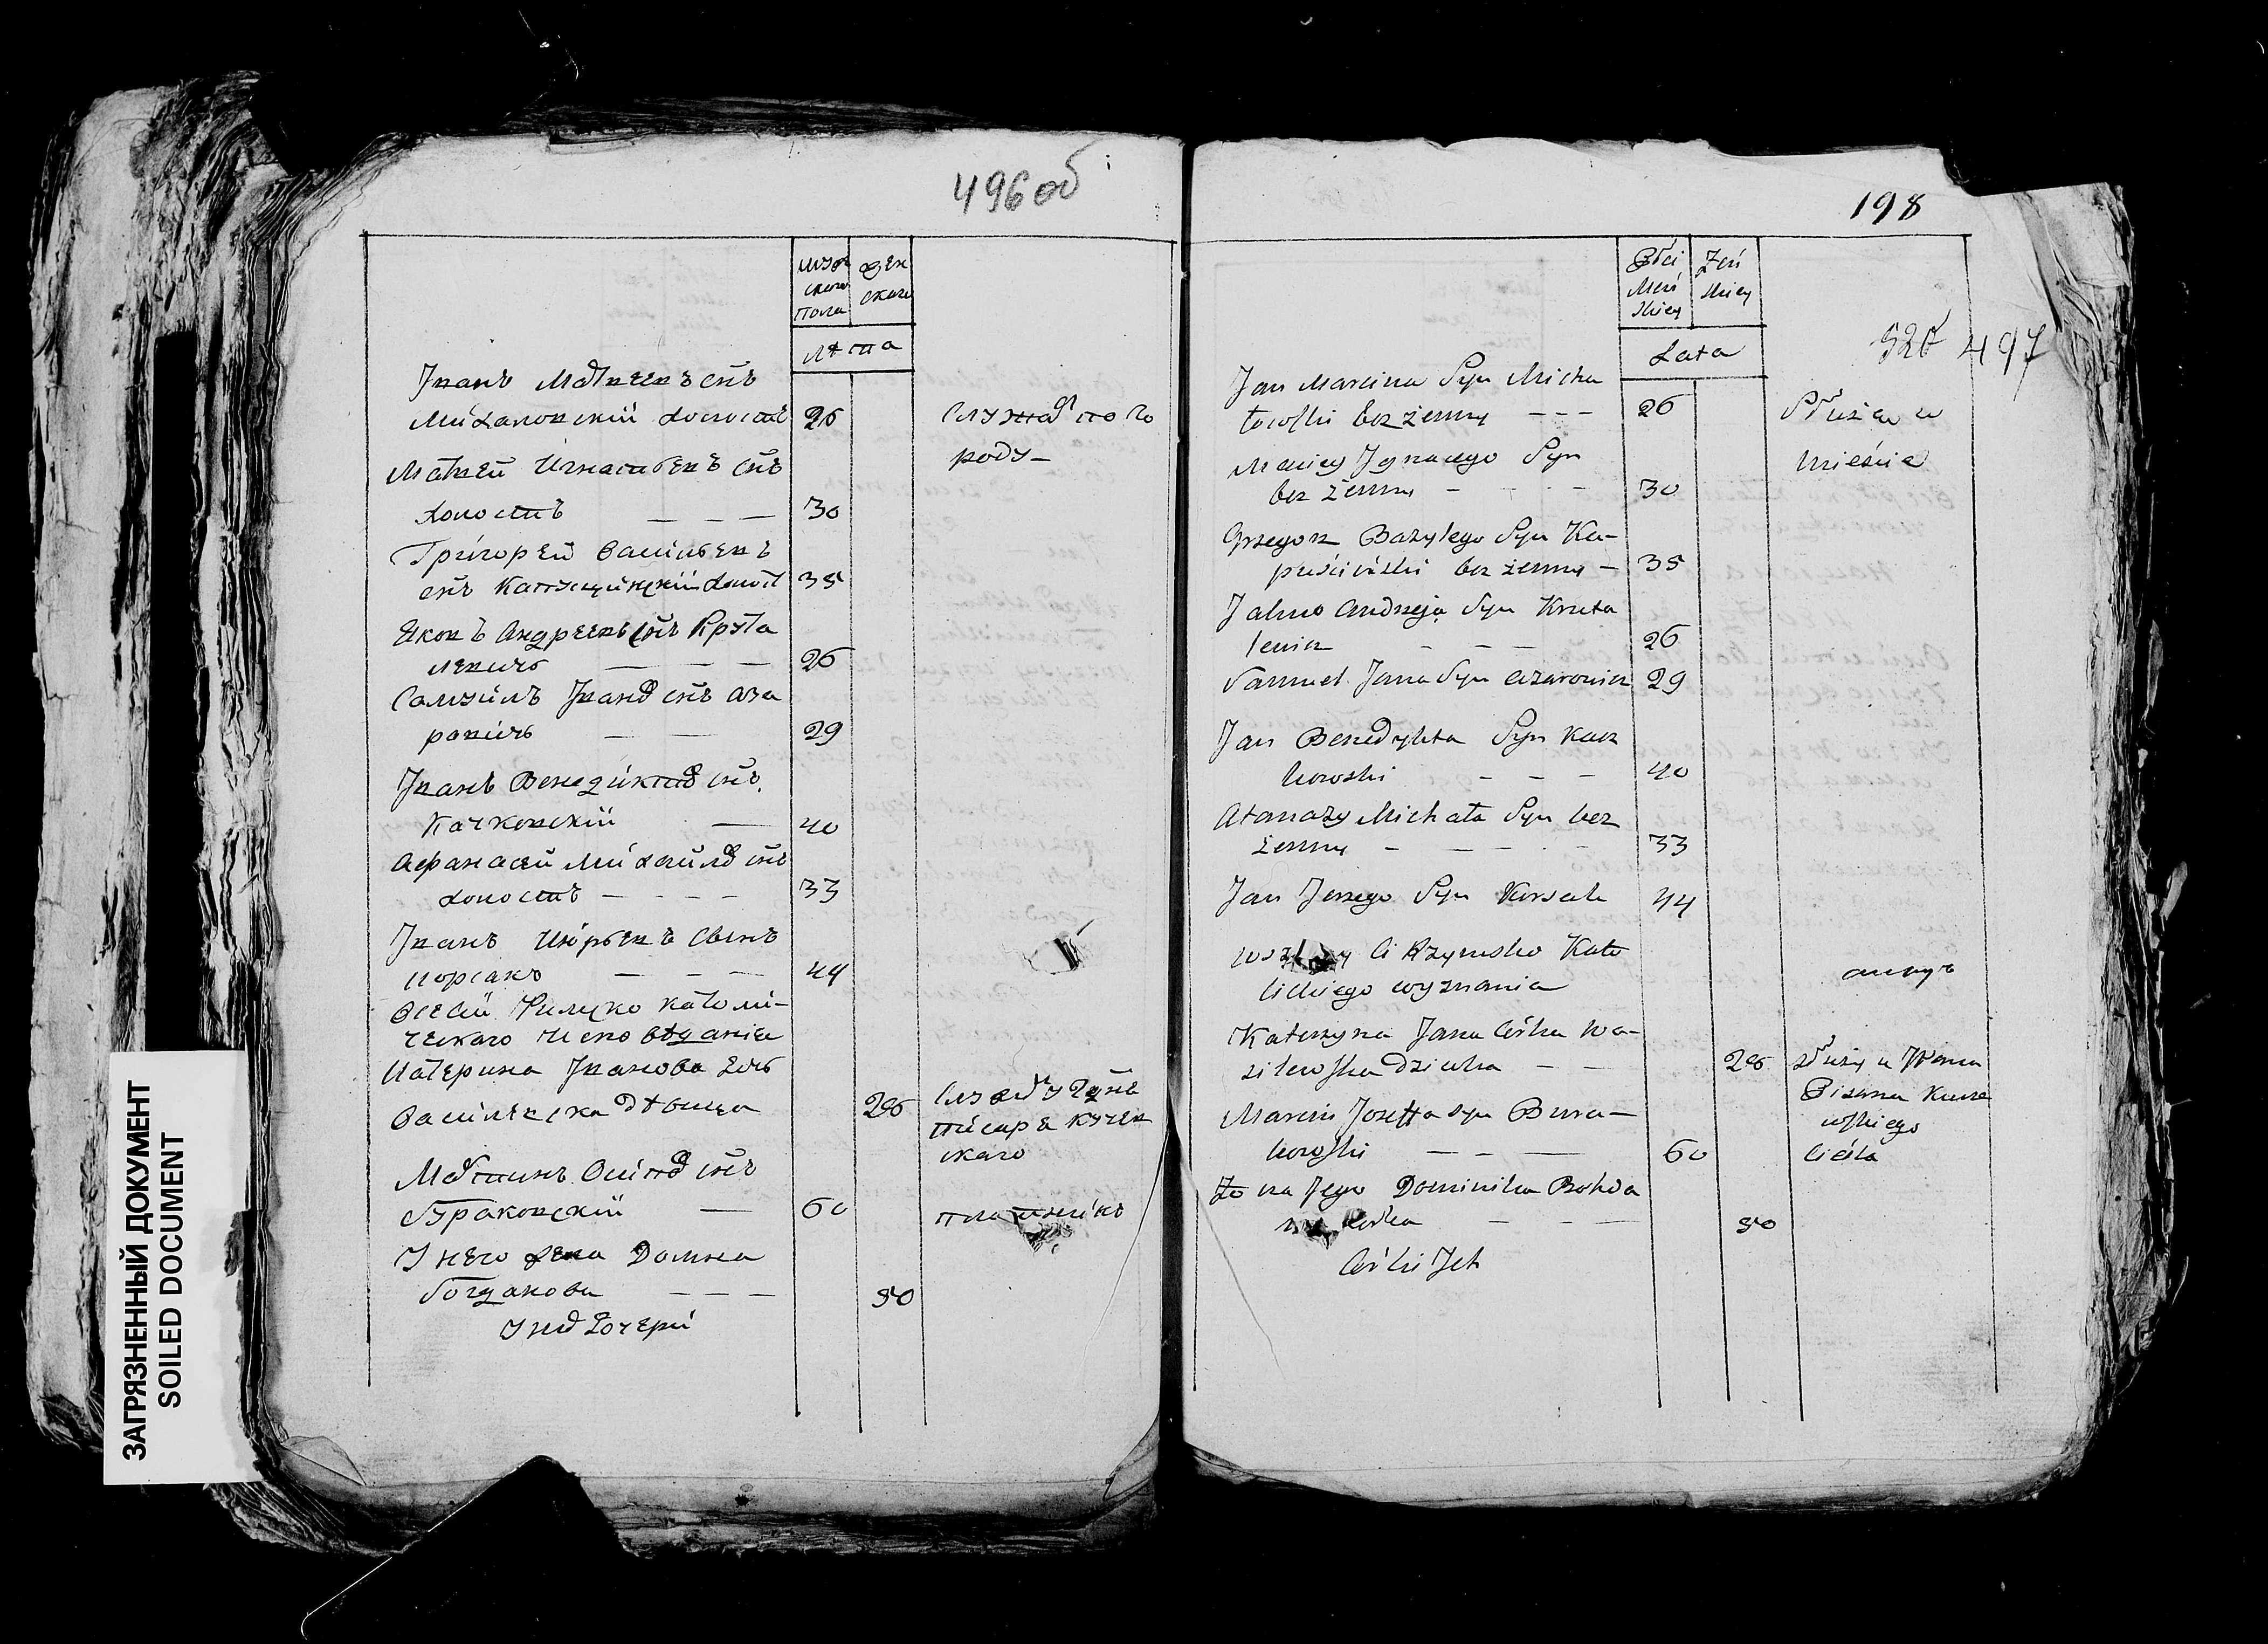 496 об
муж
ского
пола
жен
ского
лѣта
Іванъ Матвеевъ сн҃ъ
Михаловскій холостъ 26 служатъ по го
роду
Матвей Игнатьевъ сн҃ъ
холостъ — — — 30
Григорей Васильевъ
сн҃ъ Капущинскій холост 35
Яковъ Андреевъ сн҃ъ Крута
левичь — — — 26
Самуилъ Івановъ сн҃ъ Аза
ровичь — — 29
Іванъ Венедиктовъ сн҃ъ
Качковскій — 40
Афанасей Михайловъ сн҃ъ
холостъ — - - - 33
Іванъ Июрьевъ сынъ
Корсакъ — — — 44
всей Римско католи-
ческаго исповѣданіе
Катерина Іванова дочь
Василевска дѣвица 26 служитъ у
писаря Кучев
скаго
Мартинъ Осиповъ сн҃ъ
Бураковскій — 60 плотникъ
У него жена Домна
Богданова — — — 50
У них дочери
198
Płci
Męs
skiey
Żeń
skiey
Lata
526 497
Jan Marcina Syn Micha
łowski bez żenny - - - 26 Służą w
mieście
Maciey Jgnacego Syn
bez żenny - - - 30
Grzegorz Bazylego Syn Ka-
puściński bez żenny - 35
Jakub Andrzeja Syn Kruta
lewicz - - - 26
Samuel Jana Syn Azarowicz 29
Jan Benedykta Syn Kacz
kowski - - - 40
Atanazy Michała Syn bez
żenny - - - - 33
Jan Jerzego Syn Korsak 44
Rzymsko Kato
lickiego wyznania
Katerzyna Jana Córka Wa-
zilewska dziewka - - 26 służy u
Pisarza Kucze
wskiego
Marcin Józeffa syn Bura-
kowski - - — 60 Cieśla
Żona Jego Dominika Bohda
- - — 50
Córki Jch
ЗАГРЯЗНЕННЫЙ ДОКУМЕНТ
SOILED DOCUMENT